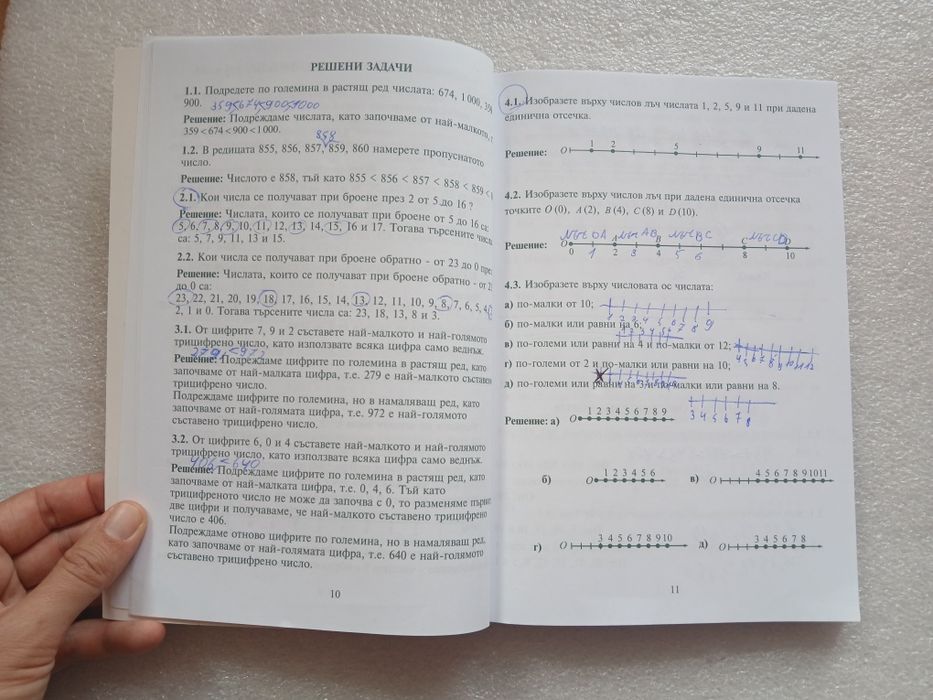 РЕШЕНИ ЗАДАЧИ
1.1. Подредете по големина в растящ ред числата: 674, 1 000, 359
900. 359<674<900<1000
Решение: Подреждаме числата, като започваме от най-малкото,
359 < 674 < 900 < 1 000.
858
1.2. В редицата 855, 856, 857, 859, 860 намерете пропуснатото
число.
Решение: Числото е 858, тъй като 855 < 856 < 857 < 858 < 859 <
2.1. Кои числа се получават при броене през 2 от 5 до 16 ?
Решение: Числата, които се получават при броене от 5 до 16 са:
5, 6, 7, 8, 9, 10, 11, 12, 13, 14, 15, 16 и 17. Тогава търсените числа
са: 5, 7, 9, 11, 13 и 15.
2.2. Кои числа се получават при броене обратно - от 23 до 0 през
Решение: Числата, които се получават при броене обратно - от 23
до 0 са:
23, 22, 21, 20, 19, 18, 17, 16, 15, 14, 13, 12, 11, 10, 9, 8, 7, 6, 5, 4,
2, 1 и 0. Тогава търсените числа са: 23, 18, 13, 8 и 3.
3.1. От цифрите 7, 9 и 2 съставете най-малкото и най-голямото
трицифрено число, като използвате всяка цифра само веднъж.
279 <972
Решение: Подреждаме цифрите по големина в растящ ред, като
започваме от най-малката цифра, т.е. 279 е най-малкото съставено
трицифрено число.
Подреждаме цифрите по големина, но в намаляващ ред, като
започваме от най-голямата цифра, т.е. 972 е най-голямото
съставено трицифрено число.
3.2. От цифрите 6, 0 и 4 съставете най-малкото и най-голямото
трицифрено число, като използвате всяка цифра само веднъж.
406 < 640
Решение: Подреждаме цифрите по големина в растящ ред, като
започваме от най-малката цифра, т.е. 0, 4, 6. Тъй като
трицифреното число не може да започва с 0, то разменяме първите
две цифри и получаваме, че най-малкото съставено трицифрено
число е 406.
Подреждаме отново цифрите по големина, но в намаляващ ред,
като започваме от най-голямата цифра, т.е. 640 е най-голямото
съставено трицифрено число.
10
4.1. Изобразете върху числов лъч числата 1, 2, 5, 9 и 11 при дадена
единична отсечка.
Решение: O 1 2 5 9 11
4.2. Изобразете върху числов лъч при дадена единична отсечка
точките O (0), A (2), B (4), C (8) и D (10).
Решение: O A B C D
0 1 2 3 4 5 6 8 10
4.3. Изобразете върху числовата ос числата:
а) по-малки от 10;
1 2 3 4 5 6 7 8 9
б) по-малки или равни на 6;
в) по-големи или равни на 4 и по-малки от 12;
4 5 6 7 8 9 10 11 12
г) по-големи от 2 и по-малки или равни на 10;
д) по-големи или равни на 3 и по-малки или равни на 8.
3 4 5 6 7 8
Решение: а) O 1 2 3 4 5 6 7 8 9
б) O 1 2 3 4 5 6 в) O 4 5 6 7 8 9 10 11
г) O 3 4 5 6 7 8 9 10 д) O 3 4 5 6 7 8
11